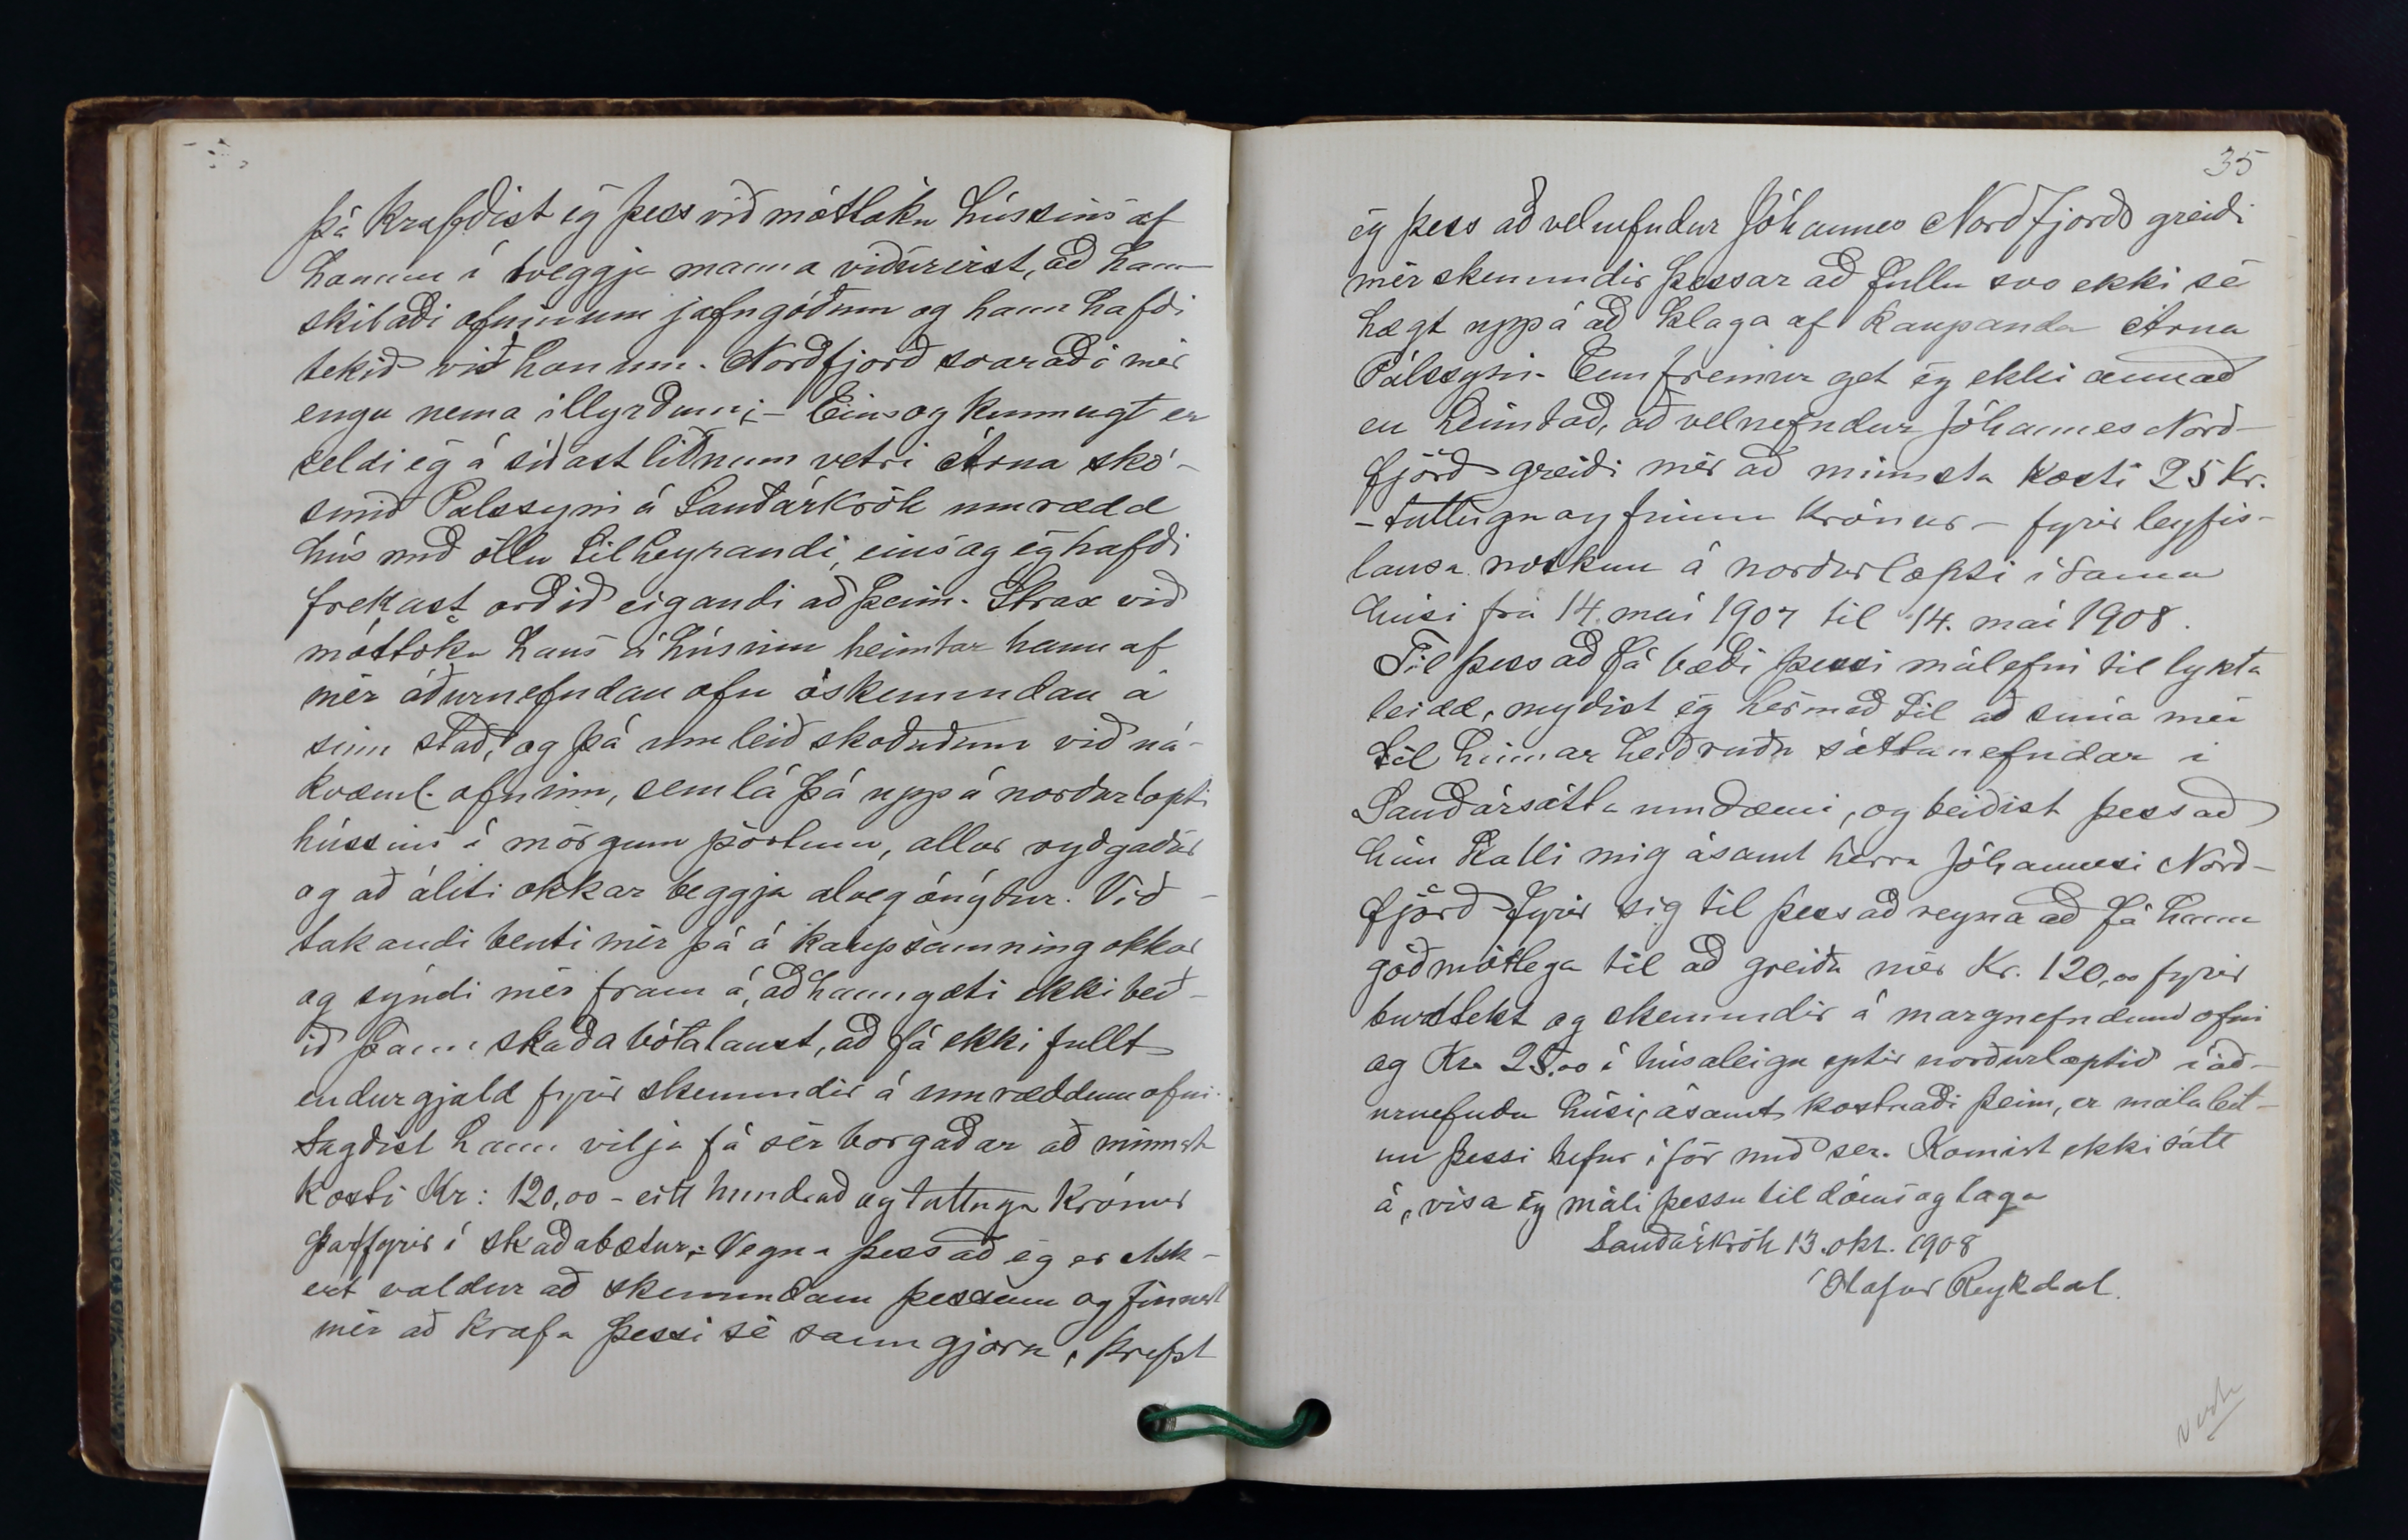 þá krafðist ég þess við móttöku hússins af
honum í tveggja manna viðurvist, að hann
skilaði ofninum jafngóðum og hann hafði
tekið við honum. Norðfjörð svaraði mér
engu nema illyrðum; - Eins og kunnugt er
seldi ég á síðastliðnum vetri Árna skó-
smið Pálssyni á Sauðárkrók umrædd
hús með öllu tilheyrandi, eins og ég hafði
frekast orðið eigandi að þeim. Strax við
móttöku hans á húsinu heimtar hann af
mér áðurnefndan ofn óskemmdan á
sinn stað, og þá um leið skoðuðum við ná-
kvæml. ofninn, sem lá þá uppá norðurlopti
hússins í mörgum pörtum, allur ryðgaður
og að áliti okkar beggja alveg ónýtur. Við-
takandi benti mér þá á kaupsamning okkar
og sýndi mér fram á, að hann gæti ekki beð-
ið þann skaða bótalaust, að fá ekki fullt
endurgjald fyrir skemmdir á umræddum ofni.
Sagðist hann vilja fá sér borgaðar að minnsta
kosti Kr: 120,00 - eitt hundrað og tuttugu Krónur
þarfyrir í skaðabætur; - Vegna þess að ég er ekk-
ert valdur að skemmdum þessum og finnst
mér að krafa þessi sé sanngjörn, krefst
35
ég þess að velnefndur Jóhannes Norðfjörð greiði
mér skemmdir þessar að fullu svo ekki sé
hægt uppá að klaga af kaupanda Árna
Pálssyni. Ennfremur get ég ekki annað
en heimtað, að velnefndur Jóhannes Norð-
fjörð greiði mér að minnsta kosti 25 Kr.
- tuttugu og fimm Krónur - fyrir leyfis-
lausa notkun á norðurlopti í sama
húsi frá 14. maí 1907 til 14. maí 1908.
Til þess að fá bæði þessi málefni til lykta
leidd, neyðist ég hérmeð til að snúa mér
til hinnar heiðruðu sáttanefndar í
Sauðársáttaumdæmi, og beiðist þess að
hún kalli mig ásamt herra Jóhannesi Norð-
fjörð fyrir sig til þess að reyna að fá hann
góðmótlega til að greiða mér Kr. 120,00 fyrir
burttekt og skemmdir á margnefndum ofni
og Kr. 25,00 í húsaleigu eptir norðurloptið í áð-
urnefndu húsi, ásamt kostnaði þeim, er málaleit-
un þessi hefur í för með sér. Komist ekki sátt
á, vísa ég máli þessu til dóms og laga
Sauðárkrók 13. okt. 1908
Ólafur Reykdal.